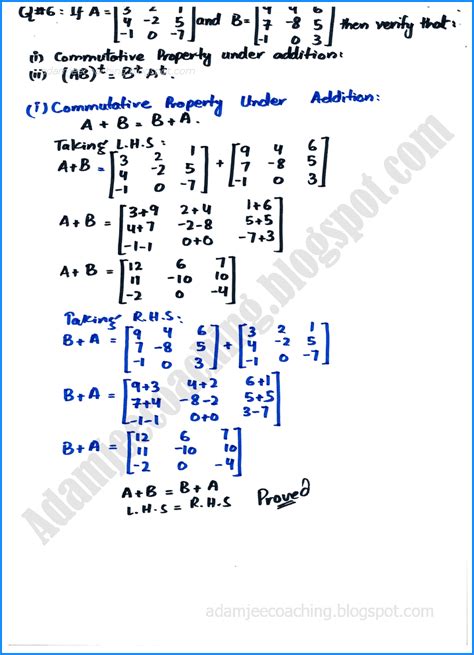 Q#6: If A = [3 2 1 and B = [9 4 6 then verify that:
4 -2 5 7 -8 5
-1 0 -7] -1 0 3]
(i) Commutative Property under addition:
(ii) (AB)ᵗ = Bᵗ Aᵗ.
(i) Commutative Property Under Addition:
A + B = B + A.
Taking L.H.S:
A+B = [3 2 1 + [9 4 6
4 -2 5 7 -8 5
-1 0 -7] -1 0 3]
A+B = [3+9 2+4 1+6
4+7 -2-8 5+5
-1-1 0+0 -7+3]
A+B = [12 6 7
11 -10 10
-2 0 -4]
Taking R.H.S:
B+A = [9 4 6 + [3 2 1
7 -8 5 4 -2 5
-1 0 3] -1 0 -7]
B+A = [9+3 4+2 6+1
7+4 -8-2 5+5
-1-1 0+0 3-7]
B+A = [12 6 7
11 -10 10
-2 0 -4]
A+B = B+A
L.H.S = R.H.S Proved
Adamjeecoaching.blogspot.com
adamjeecoaching.blogspot.com